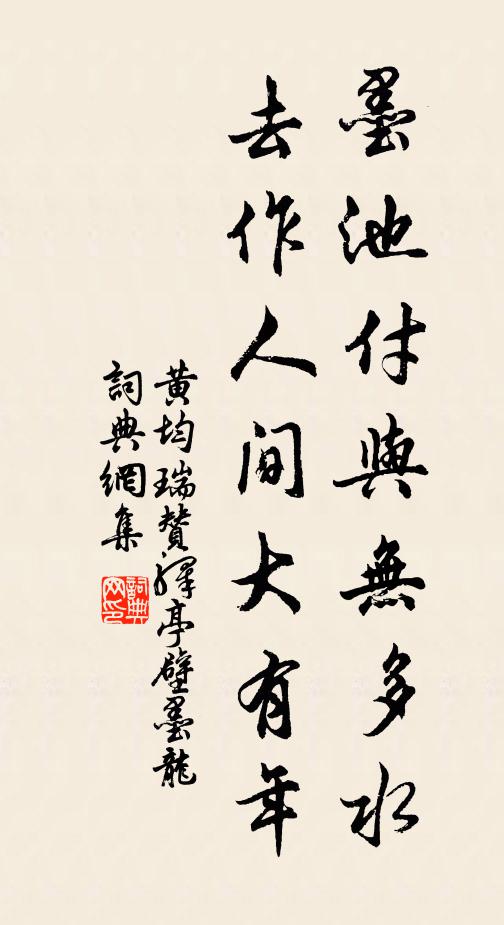 墨池付與無多水
去作人間大有年
黄均瑞贊驛亭壁墨龍
詞典網集
詞典
网印